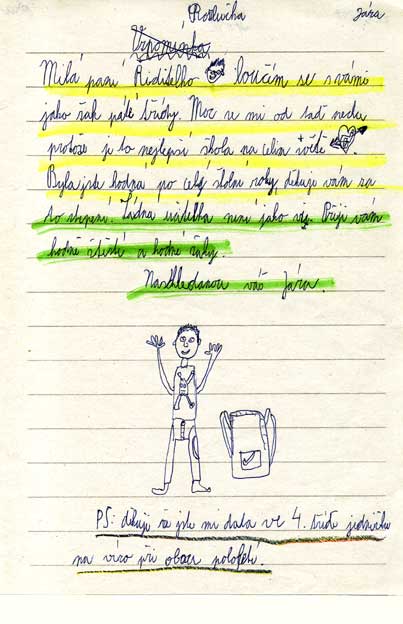 Rozlučka
Jára
Vzpomínka
Milá paní Ředitelko loučím se s vámi
jako žák páté třídy. Moc se mi od sad nechce
protože je to nejlepší škola na celim světě
Byla jste hodná po celý školní roky, děkuji vám za
to vlepení. Žádná učitelka není jako vy. Přeji vám
hodně štěstí a hodné žáky.
Naschledanou váš Jára.
PS: děkuji že jste mi dala ve 4. třídě jedničku
na víro při obou pololetí.